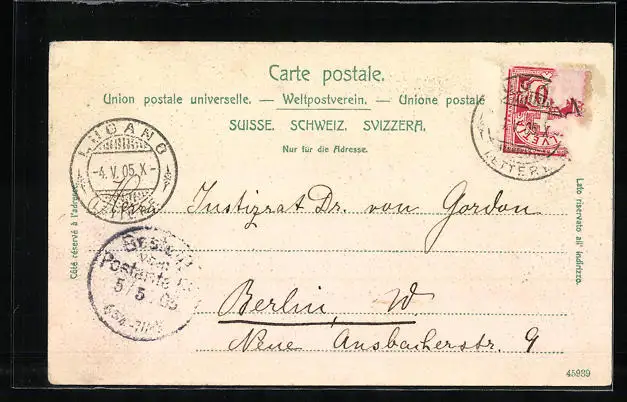 Carte postale.
Union postale universelle. — Weltpostverein. — Unione postale
SUISSE. SCHWEIZ. SVIZZERA.
Nur für die Adresse.
Côté réservé à l'adresse.
Lato riservato all' indirizzo.
LUGANO
-4.V.05.X-
LETT
LETTERE
Justizrat Dr. von Gordon
Bestellt
vom
Postamte
5/5
Berlin, W.
Neue Ansbacherstr. 9
45939